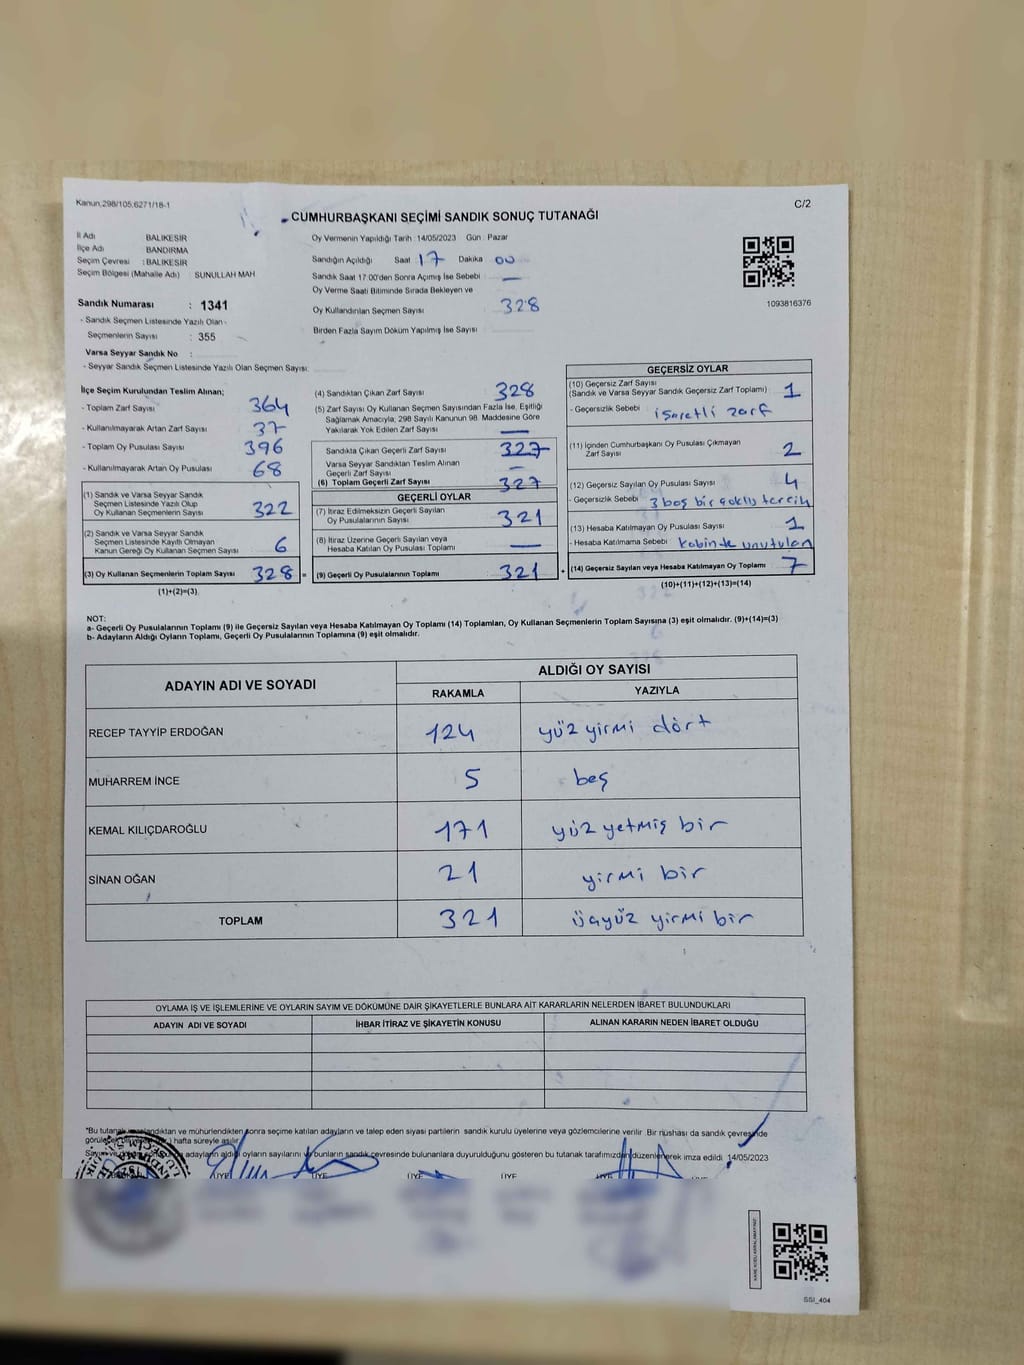 Kanun.298/105,6271/18-1
C/2
CUMHURBAŞKANI SEÇİMİ SANDIK SONUÇ TUTANAĞI
İl Adı BALIKESİR
İlçe Adı BANDIRMA
Seçim Çevresi : BALIKESİR
Seçim Bölgesi (Mahalle Adı) : SUNULLAH MAH
Sandık Numarası : 1341
- Sandık Seçmen Listesinde Yazılı Olan -
Seçmenlerin Sayısı : 355
Varsa Seyyar Sandık No :
- Seyyar Sandık Seçmen Listesinde Yazılı Olan Seçmen Sayısı:
Oy Vermenin Yapıldığı Tarih : 14/05/2023 Gün : Pazar
Sandığın Açıldığı Saat 17 Dakika 00
Sandık Saat 17:00'den Sonra Açımış İse Sebebi —
Oy Verme Saati Bitiminde Sırada Bekleyen ve
Oy Kullandırılan Seçmen Sayısı 328
Birden Fazla Sayım Döküm Yapılmış İse Sayısı
1093816376
İlçe Seçim Kurulundan Teslim Alınan;
- Toplam Zarf Sayısı 364
- Kullanılmayarak Artan Zarf Sayısı 37
- Toplam Oy Pusulası Sayısı 396
- Kullanılmayarak Artan Oy Pusulası 68
(1) Sandık ve Varsa Seyyar Sandık
Seçmen Listesinde Yazılı Olup
Oy Kullanan Seçmenlerin Sayısı 322
(2) Sandık ve Varsa Seyyar Sandık
Seçmen Listesinde Kayıtlı Olmayan
Kanun Gereği Oy Kullanan Seçmen Sayısı 6
(3) Oy Kullanan Seçmenlerin Toplam Sayısı 328 =
(1)+(2)=(3)
(4) Sandıktan Çıkan Zarf Sayısı 328
(5) Zarf Sayısı Oy Kullanan Seçmen Sayısından Fazla İse, Eşitliği
Sağlamak Amacıyla; 298 Sayılı Kanunun 98. Maddesine Göre
Yakılarak Yok Edilen Zarf Sayısı —
Sandıkta Çıkan Geçerli Zarf Sayısı 327
Varsa Seyyar Sandıktan Teslim Alınan
Geçerli Zarf Sayısı —
(6) Toplam Geçerli Zarf Sayısı 327
GEÇERLİ OYLAR
(7) İtiraz Edilmeksizin Geçerli Sayılan
Oy Pusulalarının Sayısı 321
(8) İtiraz Üzerine Geçerli Sayılan veya
Hesaba Katılan Oy Pusulası Toplamı —
(9) Geçerli Oy Pusulalarının Toplamı 321 +
GEÇERSİZ OYLAR
(10) Geçersiz Zarf Sayısı
(Sandık ve Varsa Seyyar Sandık Geçersiz Zarf Toplamı) 1
- Geçersizlik Sebebi işaretli zarf
(11) İçinden Cumhurbaşkanı Oy Pusulası Çıkmayan
Zarf Sayısı 2
(12) Geçersiz Sayılan Oy Pusulası Sayısı 4
- Geçersizlik Sebebi 3 boş bir çoklu tercih
(13) Hesaba Katılmayan Oy Pusulası Sayısı 1
- Hesaba Katılmama Sebebi kabinde unutulan
(14) Geçersiz Sayılan veya Hesaba Katılmayan Oy Toplamı 7
(10)+(11)+(12)+(13)=(14)
NOT:
a- Geçerli Oy Pusulalarının Toplamı (9) ile Geçersiz Sayılan veya Hesaba Katılmayan Oy Toplamı (14) Toplamları, Oy Kullanan Seçmenlerin Toplam Sayısına (3) eşit olmalıdır. (9)+(14)=(3)
b- Adayların Aldığı Oyların Toplamı, Geçerli Oy Pusulalarının Toplamına (9) eşit olmalıdır.
ADAYIN ADI VE SOYADI
ALDIĞI OY SAYISI
RAKAMLA YAZIYLA
RECEP TAYYİP ERDOĞAN 124 yüz yirmi dört
MUHARREM İNCE 5 beş
KEMAL KILIÇDAROĞLU 171 yüz yetmiş bir
SİNAN OĞAN 21 yirmi bir
TOPLAM 321 üçyüz yirmi bir
OYLAMA İŞ VE İŞLEMLERİNE VE OYLARIN SAYIM VE DÖKÜMÜNE DAİR ŞİKAYETLERLE BUNLARA AİT KARARLARIN NELERDEN İBARET BULUNDUKLARI
ADAYIN ADI VE SOYADI İHBAR İTİRAZ VE ŞİKAYETİN KONUSU ALINAN KARARIN NEDEN İBARET OLDUĞU
*Bu tutanak mühürlendikten sonra seçime katılan adayların ve talep eden siyasi partilerin sandık kurulu üyelerine veya gözlemcilerine verilir. Bir nüshası da sandık çevresinde
hafta süreyle asılır.
adayların aldığı oyların sayılarını ve bunların sandık çevresinde bulunanlara duyurulduğunu gösteren bu tutanak tarafımızdan düzenlenerek imza edildi. 14/05/2023
ÜYE ÜYE ÜYE ÜYE ÜYE ÜYE
SSI_404